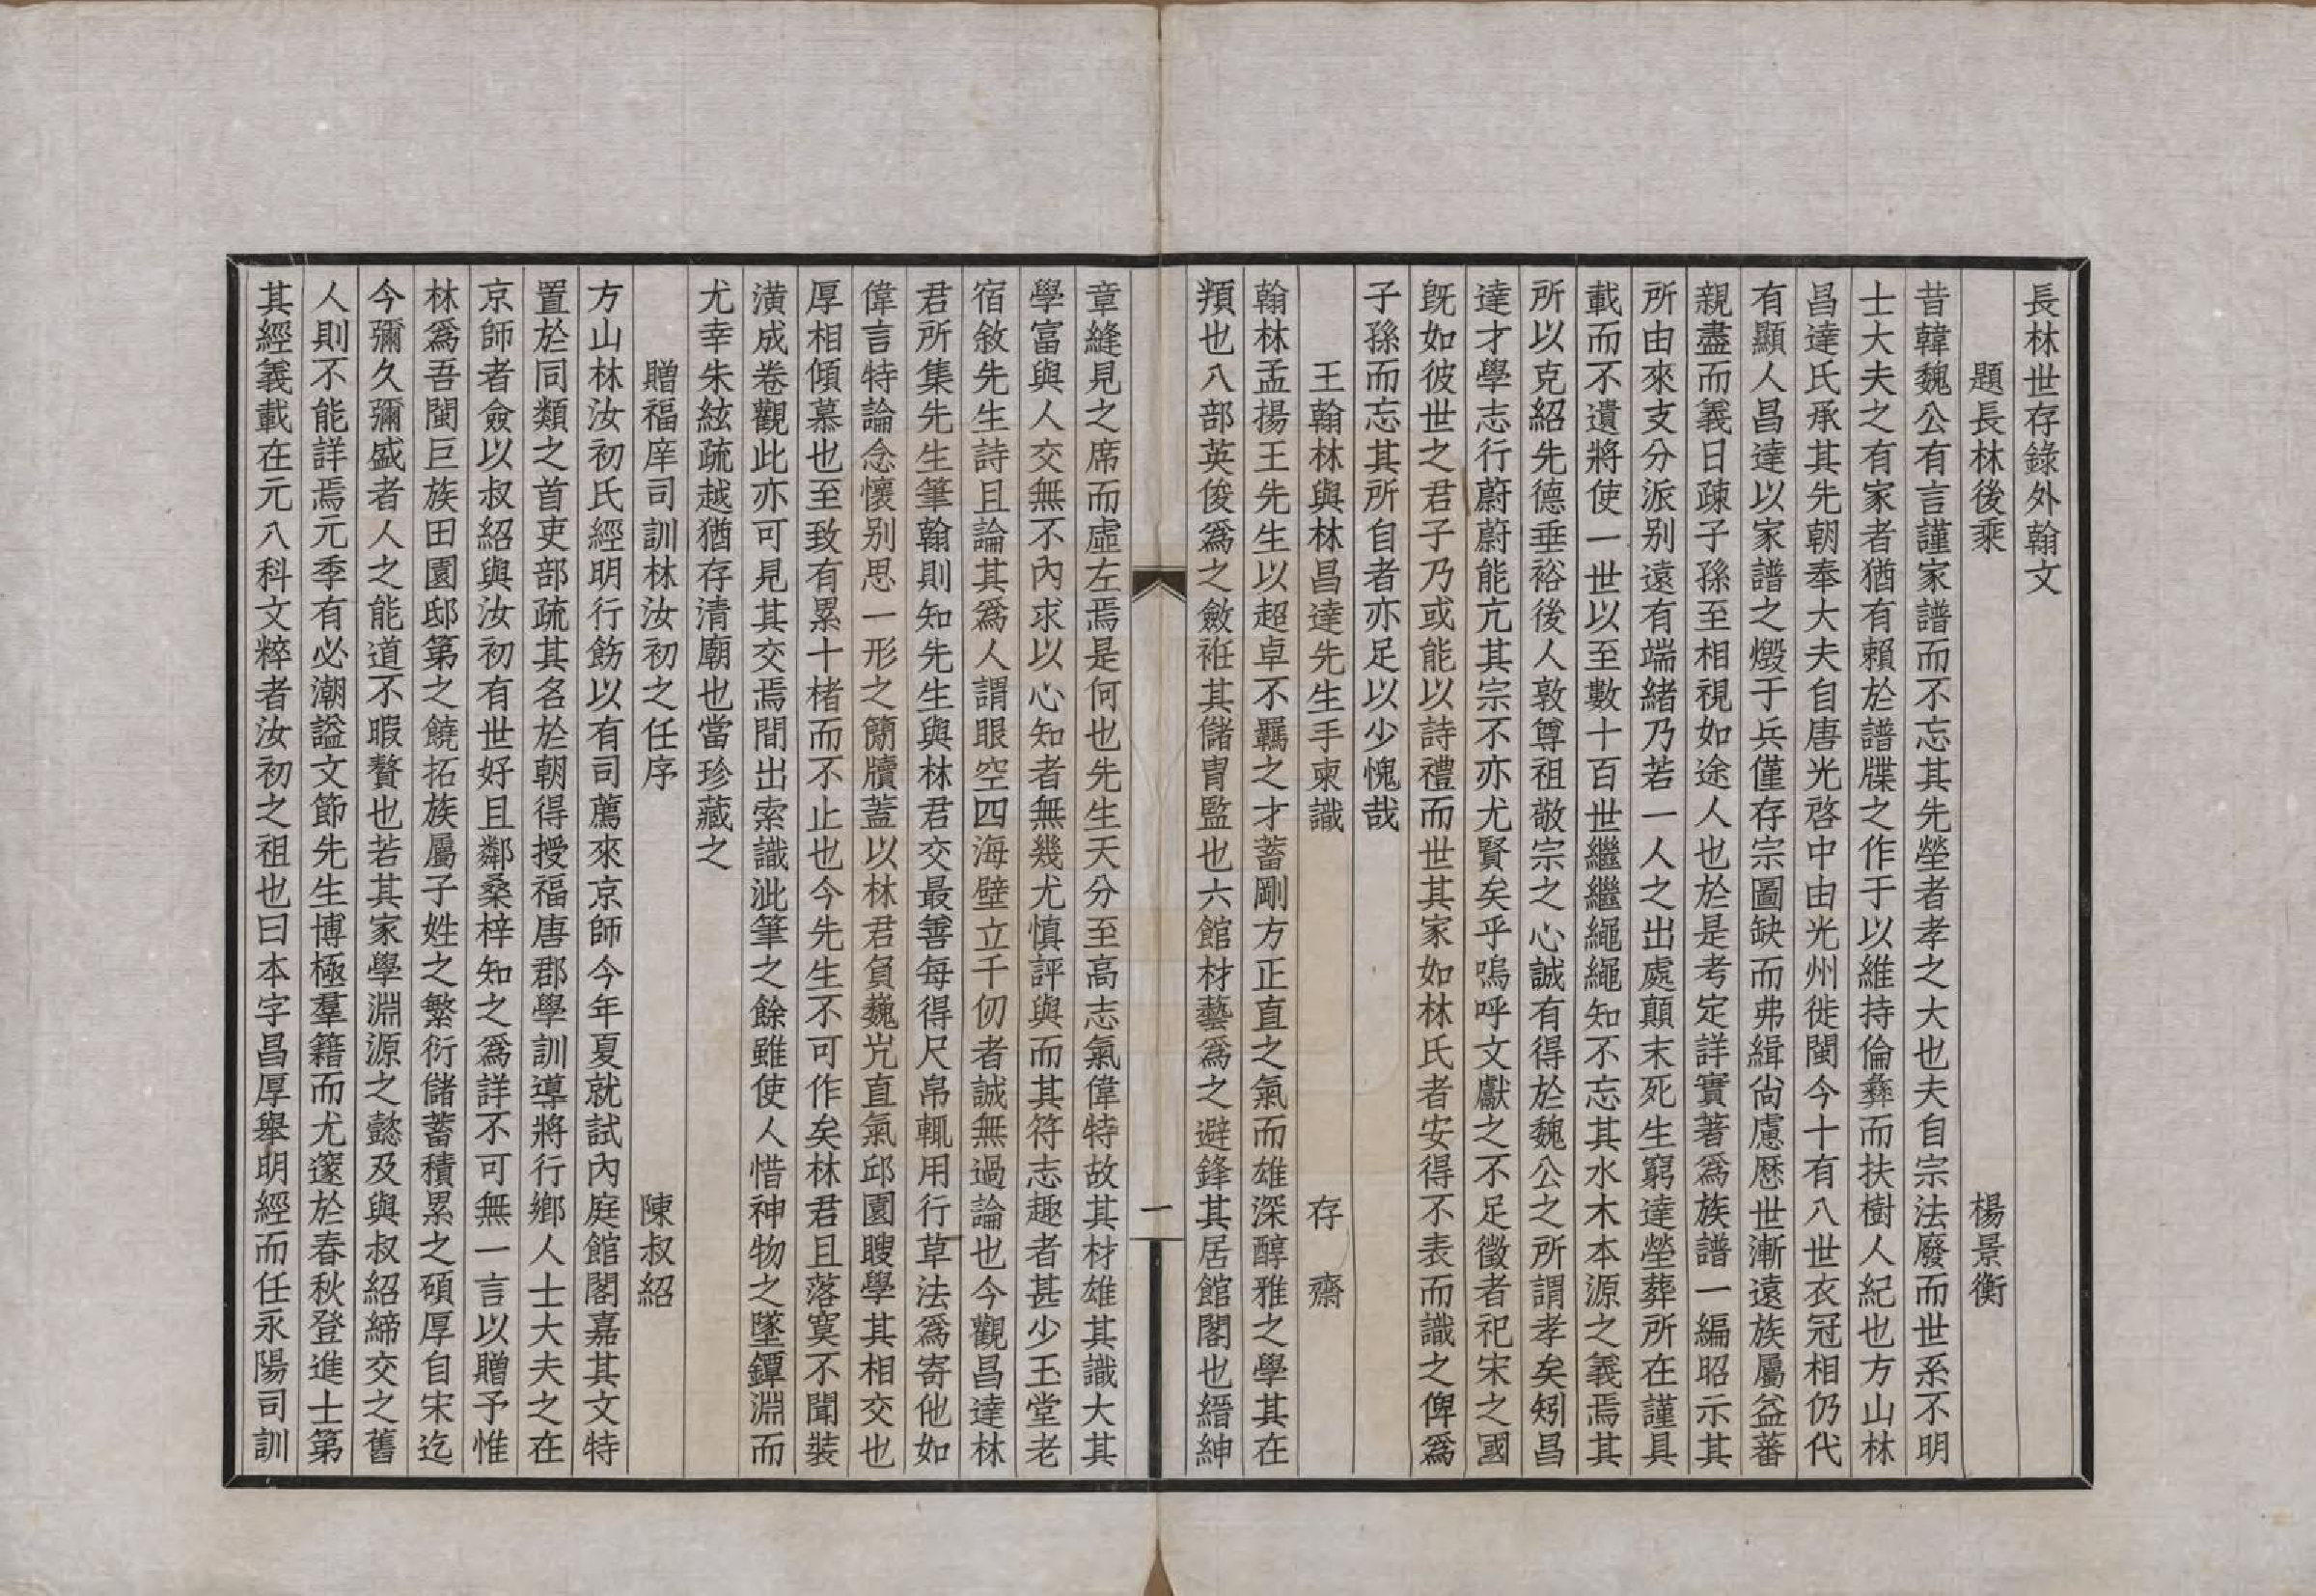 長林世存錄外翰文
題長林後乘　楊景衡
昔韓魏公有言謹家譜而不忘其先塋者孝之大也夫自宗法廢而世系不明
士大夫之有家者猶有賴於譜牒之作于以維持倫彝而扶樹人紀也方山林
昌達氏承其先朝奉大夫自唐光啓中由光州徙閩今十有八世衣冠相仍代
有顯人昌達以家譜之燬于兵僅存宗圖缺而弗緝尙慮歷世漸遠族屬益蕃
親盡而義日疎子孫至相視如途人也於是考定詳實著爲族譜一編昭示其
所由來支分派别遠有端緒乃若一人之出處顛末死生窮達塋葬所在謹具
載而不遺將使一世以至數十百世繼繼繩繩知不忘其水木本源之義焉其
所以克紹先德垂裕後人敦尊祖敬宗之心誠有得於魏公之所謂孝矣矧昌
達才學志行蔚蔚能亢其宗不亦尤賢矣乎嗚呼文獻之不足徵者祀宋之國
旣如彼世之君子乃或能以詩禮而世其家如林氏者安得不表而識之俾爲
子孫而忘其所自者亦足以少愧哉
王翰林與林昌達先生手柬識　存齋
翰林孟揚王先生以超卓不羈之才蓄剛方正直之氣而雄深醇雅之學其在
頖也八部英俊爲之斂袵其儲胄監也六館材藝爲之避鋒其居館閣也縉紳
一
章縫見之席而虛左焉是何也先生天分至高志氣偉特故其材雄其識大其
學富與人交無不內求以心知者無幾尤慎評與而其符志趣者甚少玉堂老
宿敘先生詩且論其爲人謂眼空四海壁立千仞者誠無過論也今觀昌達林
君所集先生筆翰則知先生與林君交最善每得尺帛輒用行草法爲寄他如
偉言特論念懷别思一形之簡牘蓋以林君負巍岇直氣邱園瞍學其相交也
厚相傾慕也至致有累十楮而不止也今先生不可作矣林君且落寞不聞裝
潢成卷觀此亦可見其交焉間出索識泚筆之餘雖使人惜神物之墜鐔淵而
尤幸朱絃疏越猶存清廟也當珍藏之
贈福庠司訓林汝初之任序　陳叔紹
方山林汝初氏經明行飭以有司薦來京師今年夏就試內庭館閣嘉其文特
置於同類之首吏部疏其名於朝得授福唐郡學訓導將行鄉人士大夫之在
京師者僉以叔紹與汝初有世好且鄰桑梓知之爲詳不可無一言以贈予惟
林爲吾閩巨族田園邸第之饒拓族屬子姓之繁衍儲蓄積累之碩厚自宋迄
今彌久彌盛者人之能道不暇贅也若其家學淵源之懿及與叔紹締交之舊
人則不能詳焉元季有必潮謚文節先生博極羣籍而尤邃於春秋登進士第
其經義載在元八科文粹者汝初之祖也曰本字昌厚舉明經而任永陽司訓